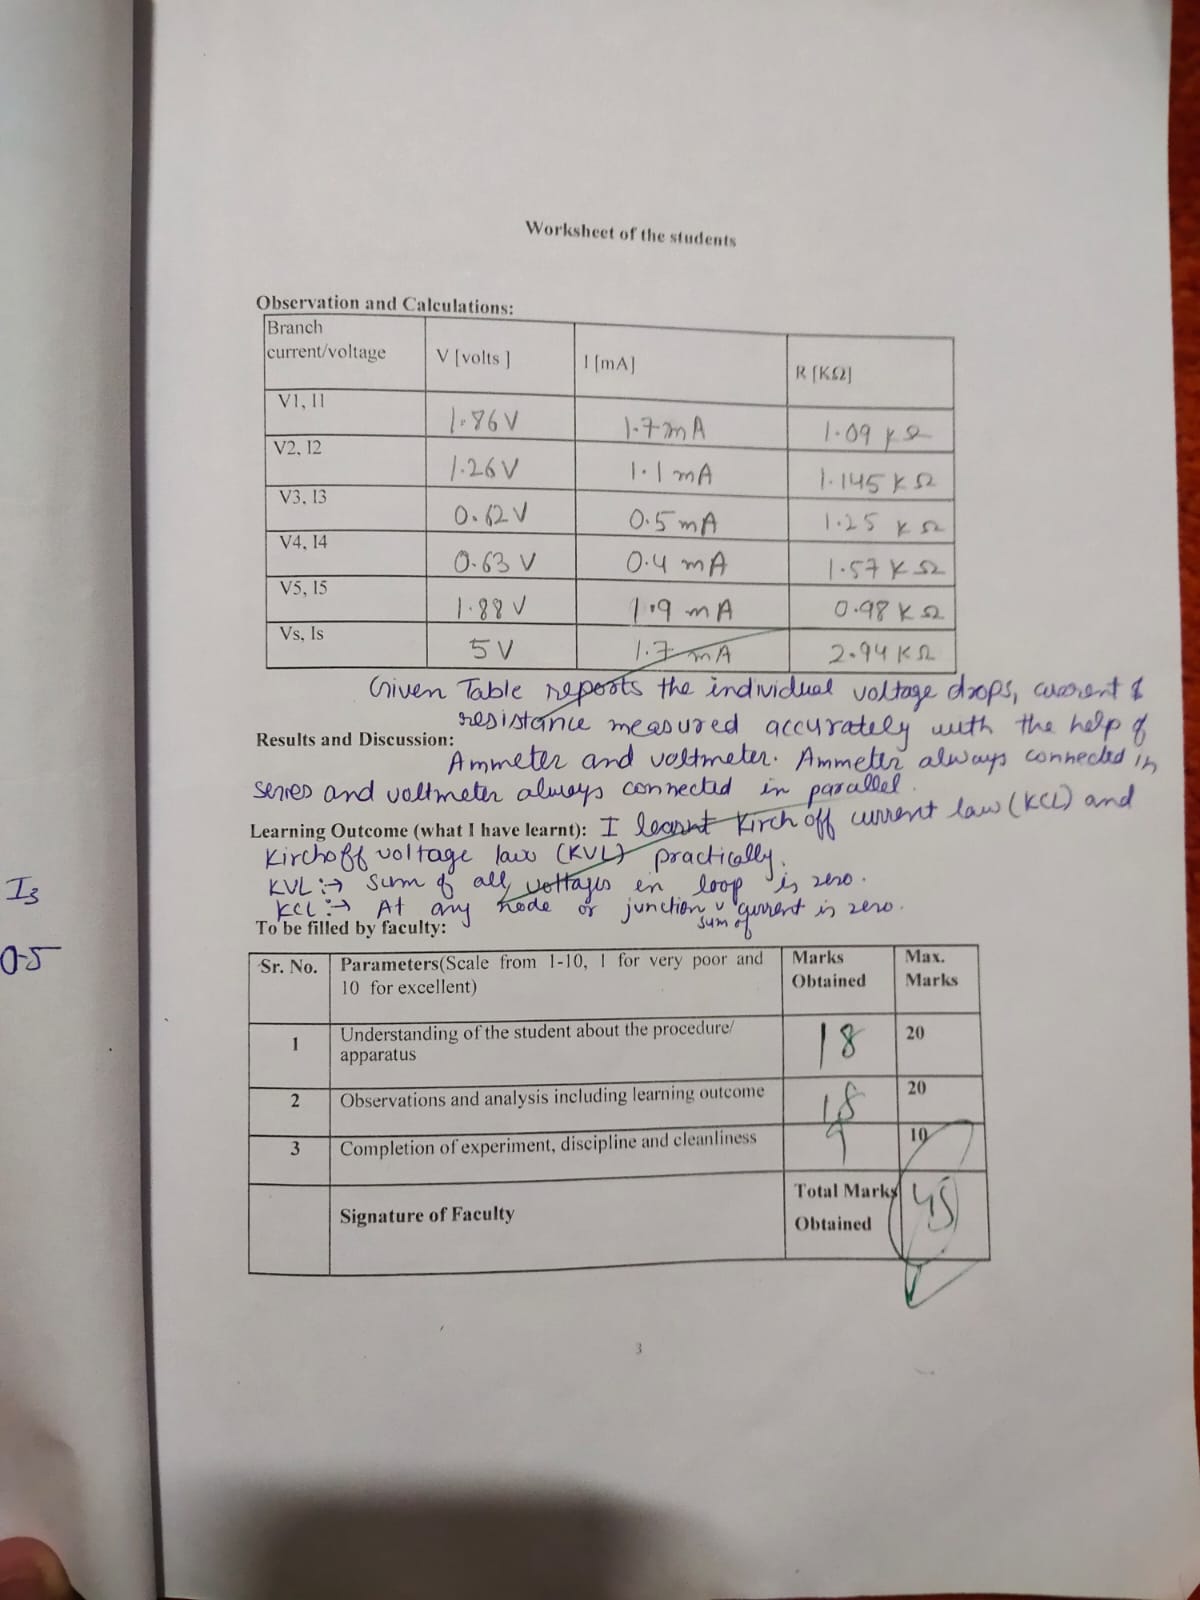 Worksheet of the students
Observation and Calculations:
Branch current/voltage V [volts ] I [mA] R [KΩ]
V1, I1 1.86V 1.7mA 1.09 KΩ
V2, I2 1.26V 1.1 mA 1.145 KΩ
V3, I3 0.62V 0.5 mA 1.25 KΩ
V4, I4 0.63 V 0.4 mA 1.57 KΩ
V5, I5 1.88 V 1.9 mA 0.98 KΩ
Vs, Is 5 V 1.7 mA 2.94 KΩ
Given Table reports the individual voltage drops, current &
resistance measured accurately with the help of
Results and Discussion:
Ammeter and voltmeter. Ammeter always connected in
series and voltmeter always connected in parallel.
Learning Outcome (what I have learnt): I learnt Kirchoff current law (KCL) and
Kirchoff voltage law (KVL) practically.
KVL :→ Sum of all voltages in loop is zero.
KCL :→ At any node or junction sum of current is zero.
To be filled by faculty:
Sr. No. Parameters(Scale from 1-10, 1 for very poor and 10 for excellent) Marks Obtained Max. Marks
1 Understanding of the student about the procedure/ apparatus 18 20
2 Observations and analysis including learning outcome 18 20
3 Completion of experiment, discipline and cleanliness 9 10
Signature of Faculty Total Marks Obtained 45
3
I3
0.5